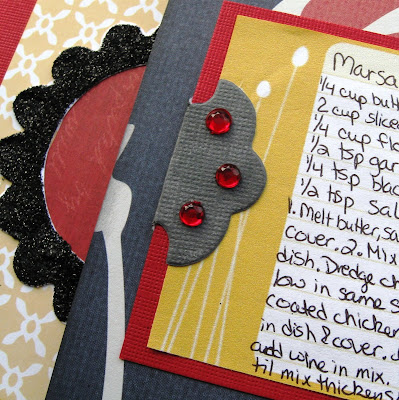 Marsa
1/4 cup butt
2 cup sliced
1/4 cup flo
1/2 tsp gar
1/4 tsp blac
1/2 tsp sal
1. Melt butter, sa
cover. 2. Mix
dish. Dredge ch
low in same s
coated chicken
in dish & cover.
add wine in mix.
til mix thickens